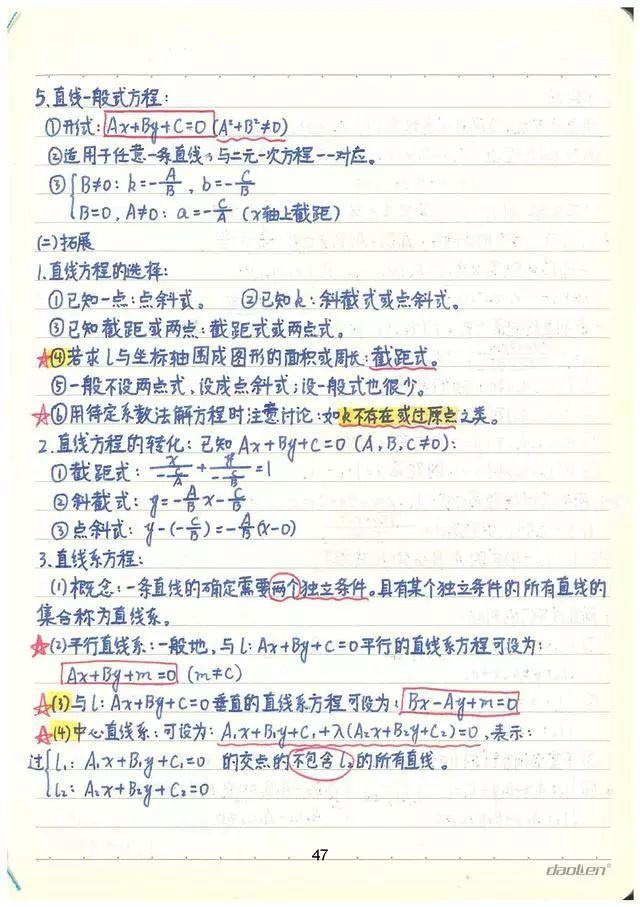 5.直线一般式方程:
①形式: Ax+By+C=0 (A²+B²≠0)
②适用于任意一条直线,与二元一次方程一一对应。
③{B≠0: k=-A/B, b=-C/B
B=0, A≠0: a=-C/A (x轴上截距)
(二)拓展
1.直线方程的选择:
①已知一点:点斜式。 ②已知k:斜截式或点斜式。
③已知截距或两点:截距式或两点式。
☆④若求l与坐标轴围成图形的面积或周长:截距式。
⑤一般不设两点式,设成点斜式;设一般式也很少。
☆⑥用待定系数法解方程时注意讨论:如k不存在或过原点之类。
2.直线方程的转化:已知Ax+By+C=0 (A,B,C≠0):
①截距式: x/(-C/A) + y/(-C/B) =1
②斜截式: y=-A/B x-C/B
③点斜式: y-(-C/B)=-A/B(x-0)
3.直线系方程:
(1)概念:一条直线的确定需要两个独立条件。具有某个独立条件的所有直线的
集合称为直线系。
☆(2)平行直线系:一般地,与l:Ax+By+C=0平行的直线系方程可设为:
Ax+By+m=0 (m≠C)
☆(3)与l:Ax+By+C=0垂直的直线系方程可设为: Bx-Ay+m=0
☆(4)中心直线系:可设为: A₁x+B₁y+C₁+λ(A₂x+B₂y+C₂)=0,表示:
过{l₁: A₁x+B₁y+C₁=0 的交点的不包含l₂的所有直线。
l₂: A₂x+B₂y+C₂=0
47
daolien®